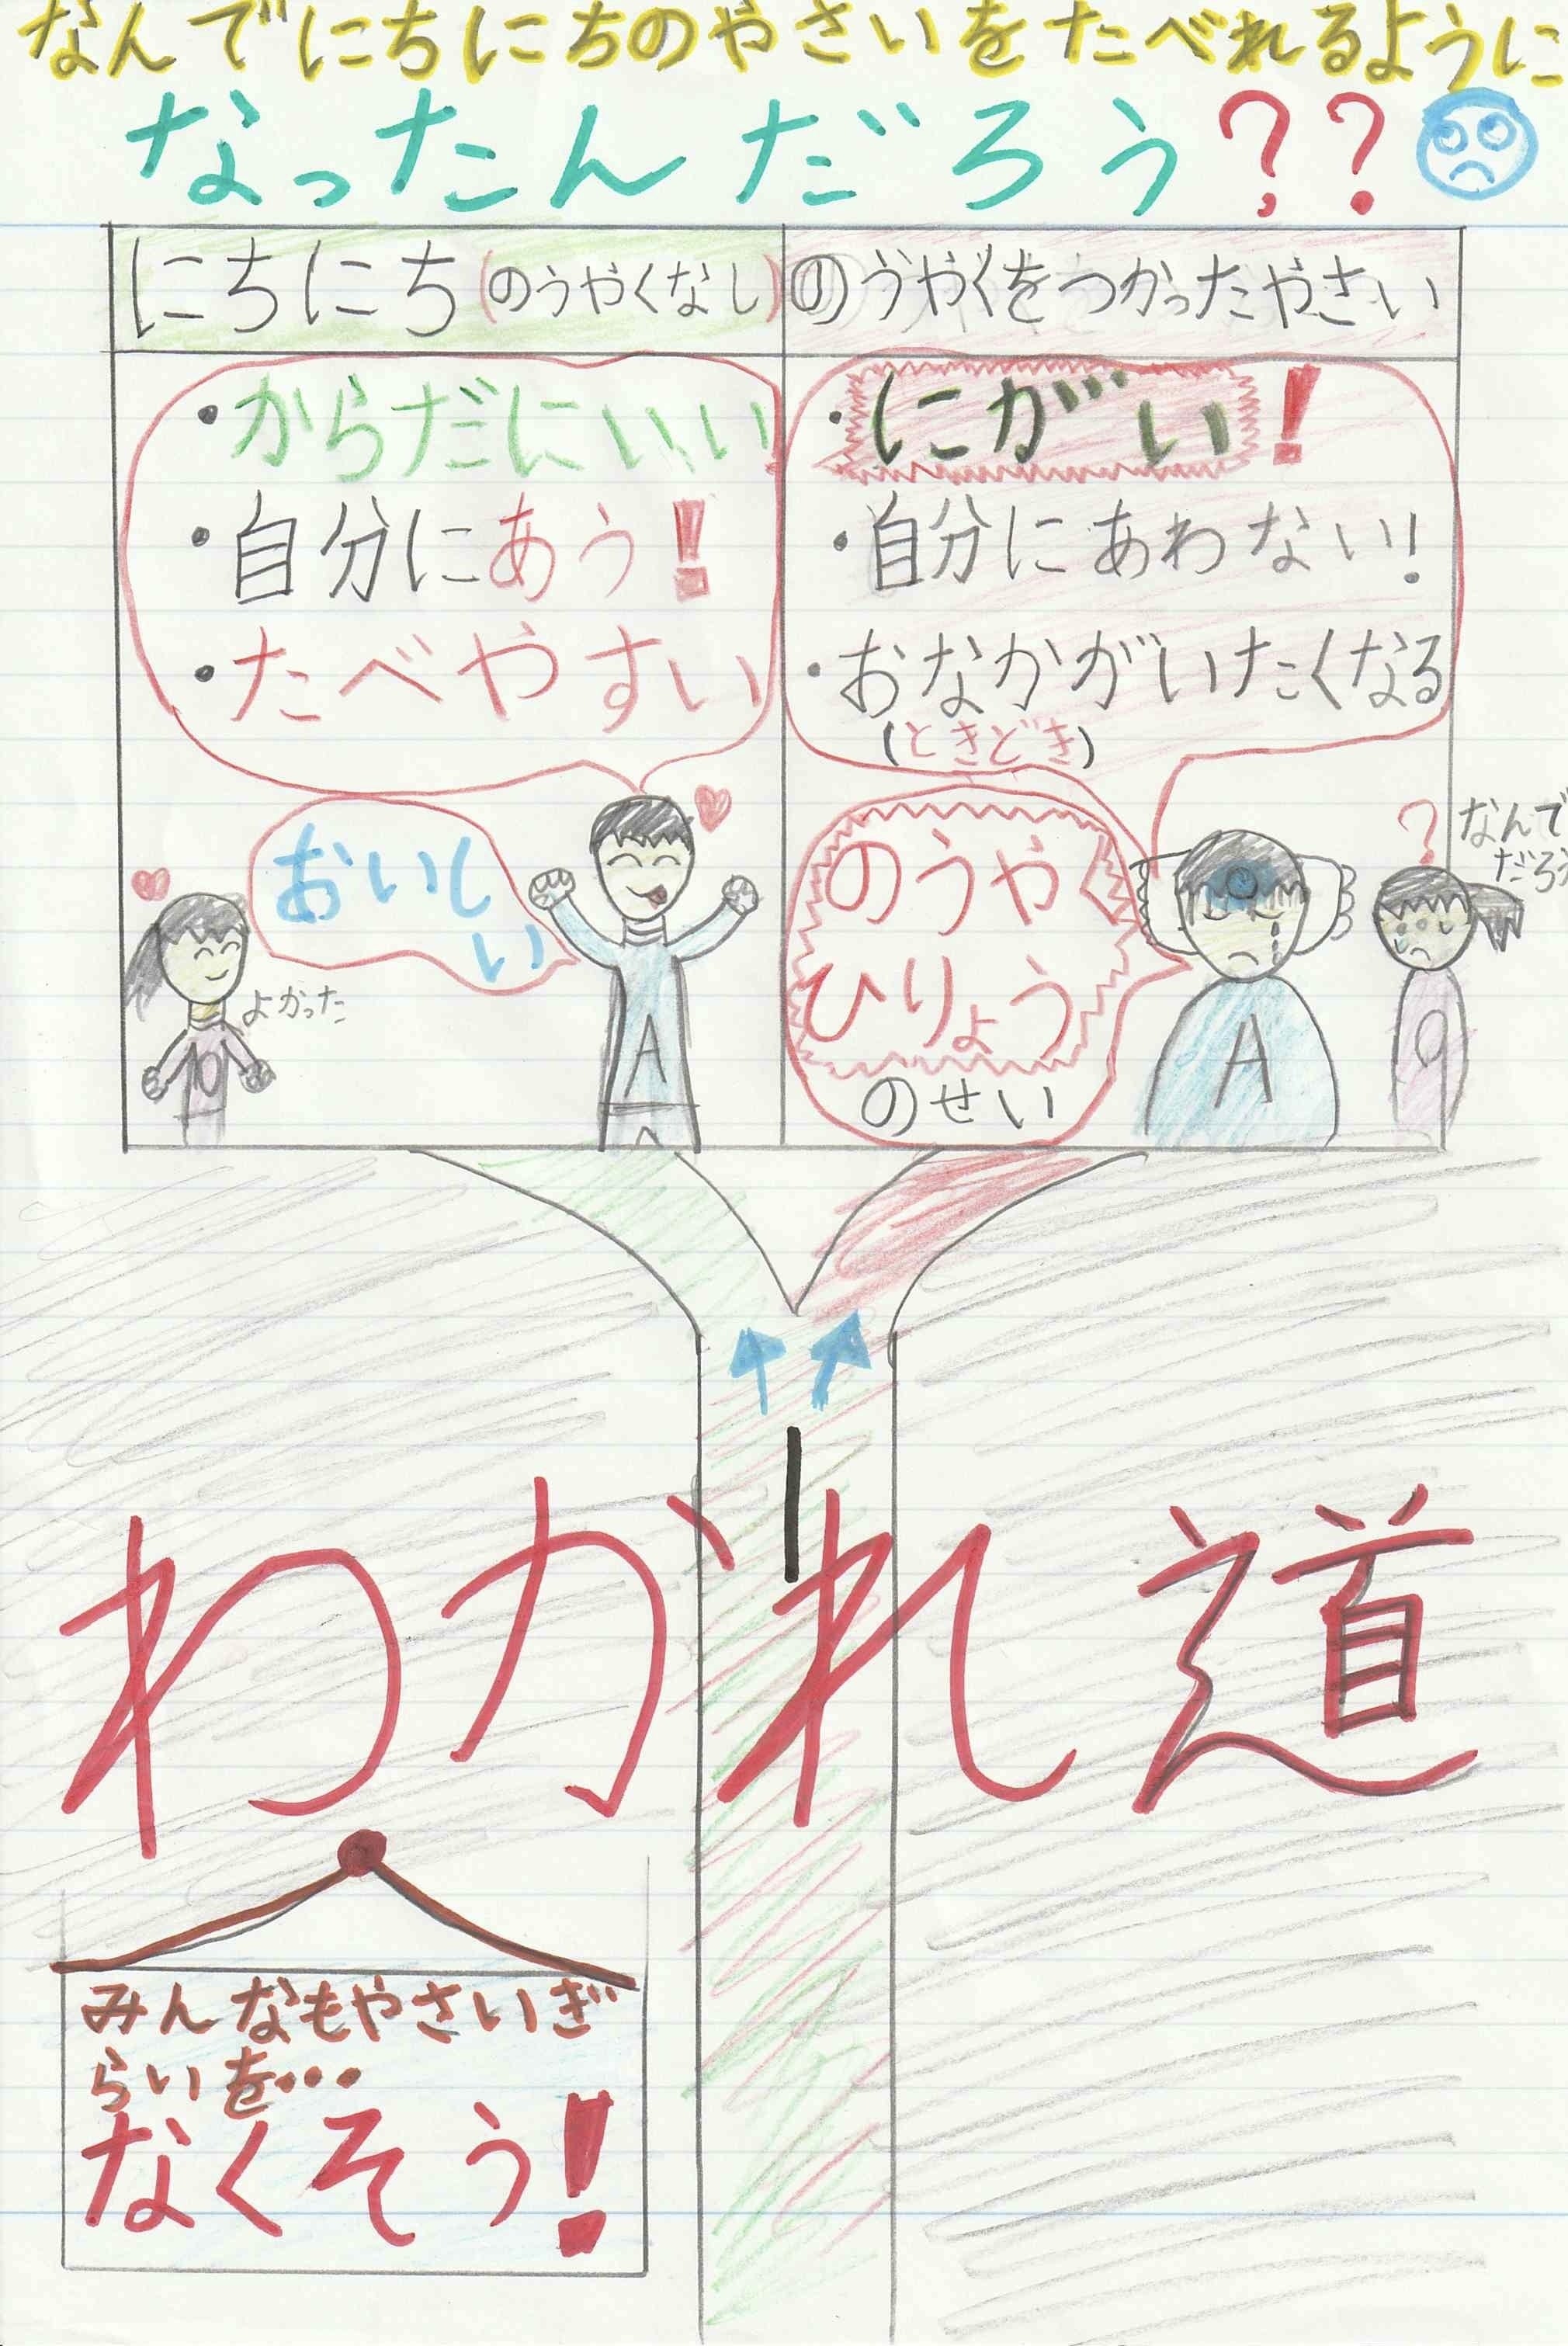 なんでにちにちのやさいをたべれるように
なったんだろう??
にちにち(のうやくなし)
・からだにいい
・自分にあう!
・たべやすい
おいしい
よかった
A
O
のうやくをつかったやさい
・にがい!
・自分にあわない!
・おなかがいたくなる
(ときどき)
のうやく
ひりょう
のせい
?
なんで
だろう
A
O
わかれ道
みんなもやさいぎ
らいを…
なくそう!